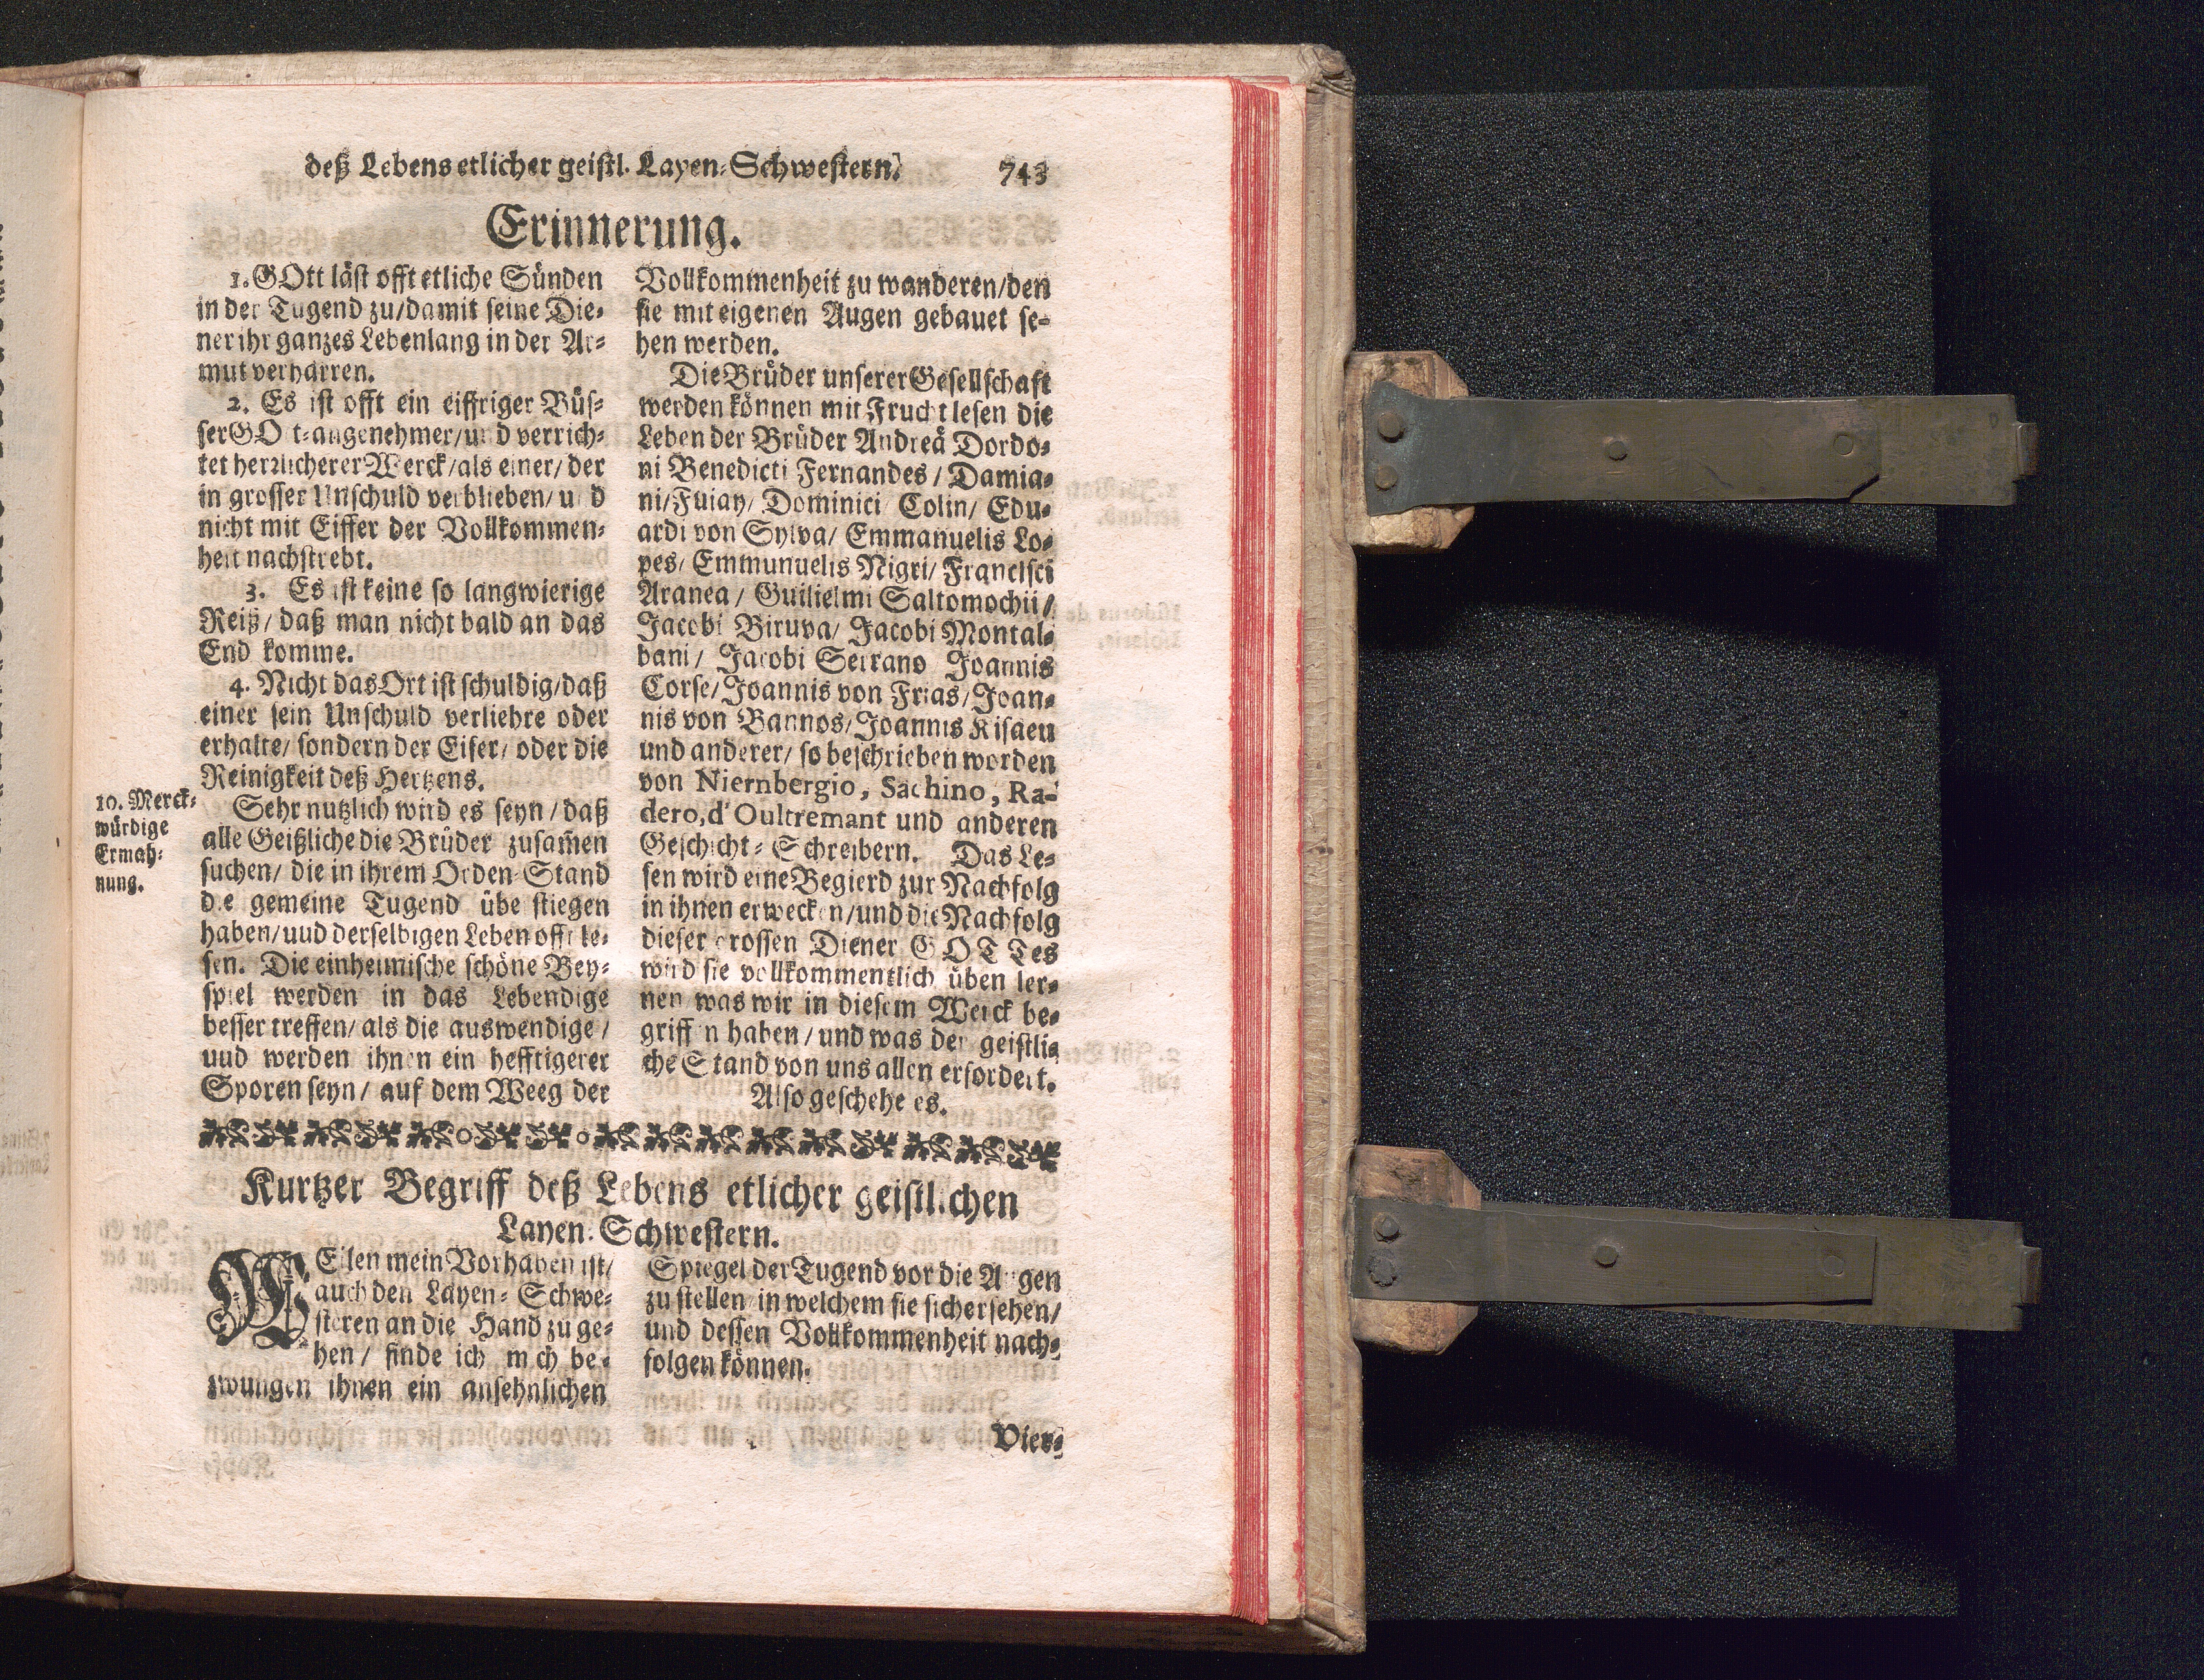 deß Lebens etlicher geistl. Layen-Schwestern. 743
Erinnerung.
1. GOtt läst offt etliche Sünden
in der Tugend zu/damit seine Die-
ner ihr ganzes Lebenlang in der Ar-
mut verharren.
2. Es ist offt ein eiffriger Büs-
ser GOtt-angenehmer/und verrich-
tet herzlicherer Werck/als einer/der
in grosser Unschuld verblieben/und
nicht mit Eiffer der Vollkommen-
heit nachstrebt.
3. Es ist keine so langwierige
Reiß/daß man nicht bald an das
End komme.
4. Nicht das Ort ist schuldig/daß
einer sein Unschuld verliehre oder
erhalte/sondern der Eifer/oder die
Reinigkeit deß Hertzens.
10. Merck-
würdige
Ermah-
nung.
Sehr nutzlich wird es seyn/daß
alle Geißliche die Brüder zusam̃en
suchen/die in ihrem Orden-Stand
die gemeine Tugend übe stiegen
haben/uud derselbigen Leben offt le-
sen. Die einheimische schöne Bey-
spiel werden in das Lebendige
besser treffen/als die auswendige/
uud werden ihnen ein hefftigerer
Sporen seyn/auf dem Weeg der
Vollkommenheit zu wanderen/den
sie mit eigenen Augen gebauet se-
hen werden.
Die Brüder unserer Gesellschaft
werden können mit Frucht lesen die
Leben der Brüder Andreä Dordo-
ni Benedicti Fernandes/Damia-
ni/Fuiay/Dominici Colin/Edu-
ardi von Sylva/Emmanuelis Lo-
pes/Emmunuelis Nigri/Francisci
Aranea/Guilielmi Saltomochii/
Jacobi Biruva/Jacobi Montal-
bani/Jacobi Serrano Joannis
Corse/Joannis von Frias/Joan-
nis von Bannos/Joannis Risaeu
und anderer/so beschrieben worden
von Niernbergio, Sachino, Ra-
dero, d'Oultremant und anderen
Geschicht-Schreibern. Das Le-
sen wird eine Begierd zur Nachfolg
in ihnen erwecken/und die Nachfolg
dieser grossen Diener GOTTes
wird sie vollkommentlich üben ler-
nen was wir in diesem Werck be-
griffen haben/und was der geistli-
che Stand von uns allen erfordert.
Also geschehe es.
Kurtzer Begriff deß Lebens etlicher geistlichen
Layen-Schwestern.
WEilen mein Vorhaben ist/
auch den Layen-Schwe-
steren an die Hand zu ge-
hen/finde ich mich be-
zwungen ihnen ein ansehnlichen
Spiegel der Tugend vor die Augen
zu stellen in welchem sie sich ersehen/
und dessen Vollkommenheit nach-
folgen können.
Vier-